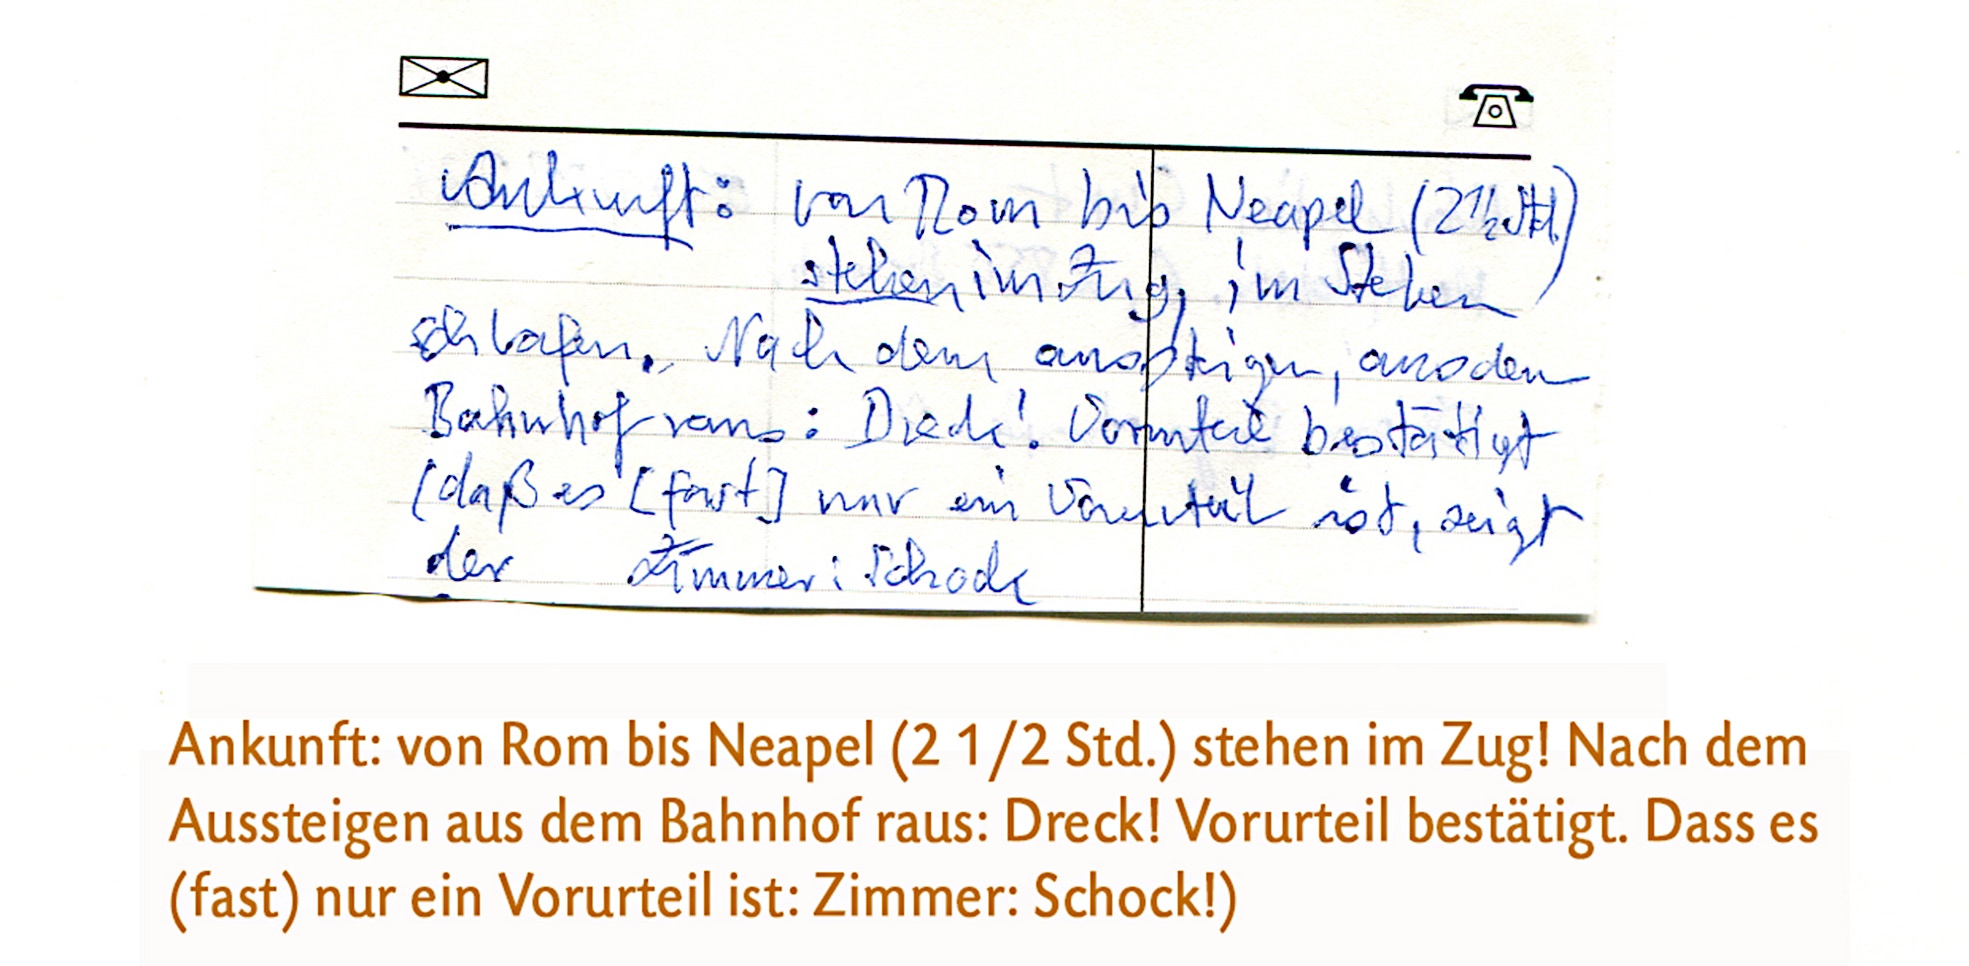 Ankunft: von Rom bis Neapel (2 1/2 Std.)
stehen im Zug, im Stehen
schlafen. Nach dem aussteigen, aus dem
Bahnhof raus: Dreck! Vorurteil bestätigt
(daß es [fast] nur ein Vorurteil ist, zeigt
der Zimmer: Schock
Ankunft: von Rom bis Neapel (2 1/2 Std.) stehen im Zug! Nach dem
Aussteigen aus dem Bahnhof raus: Dreck! Vorurteil bestätigt. Dass es
(fast) nur ein Vorurteil ist: Zimmer: Schock!)